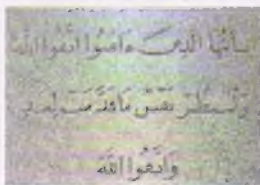 يَٰٓأَيُّهَا ٱلَّذِينَ ءَامَنُوا۟ ٱتَّقُوا۟ ٱللَّهَ
وَلْتَنظُرْ نَفْسٌ مَّا قَدَّمَتْ لِغَدٍ
وَٱتَّقُوا۟ ٱللَّهَ